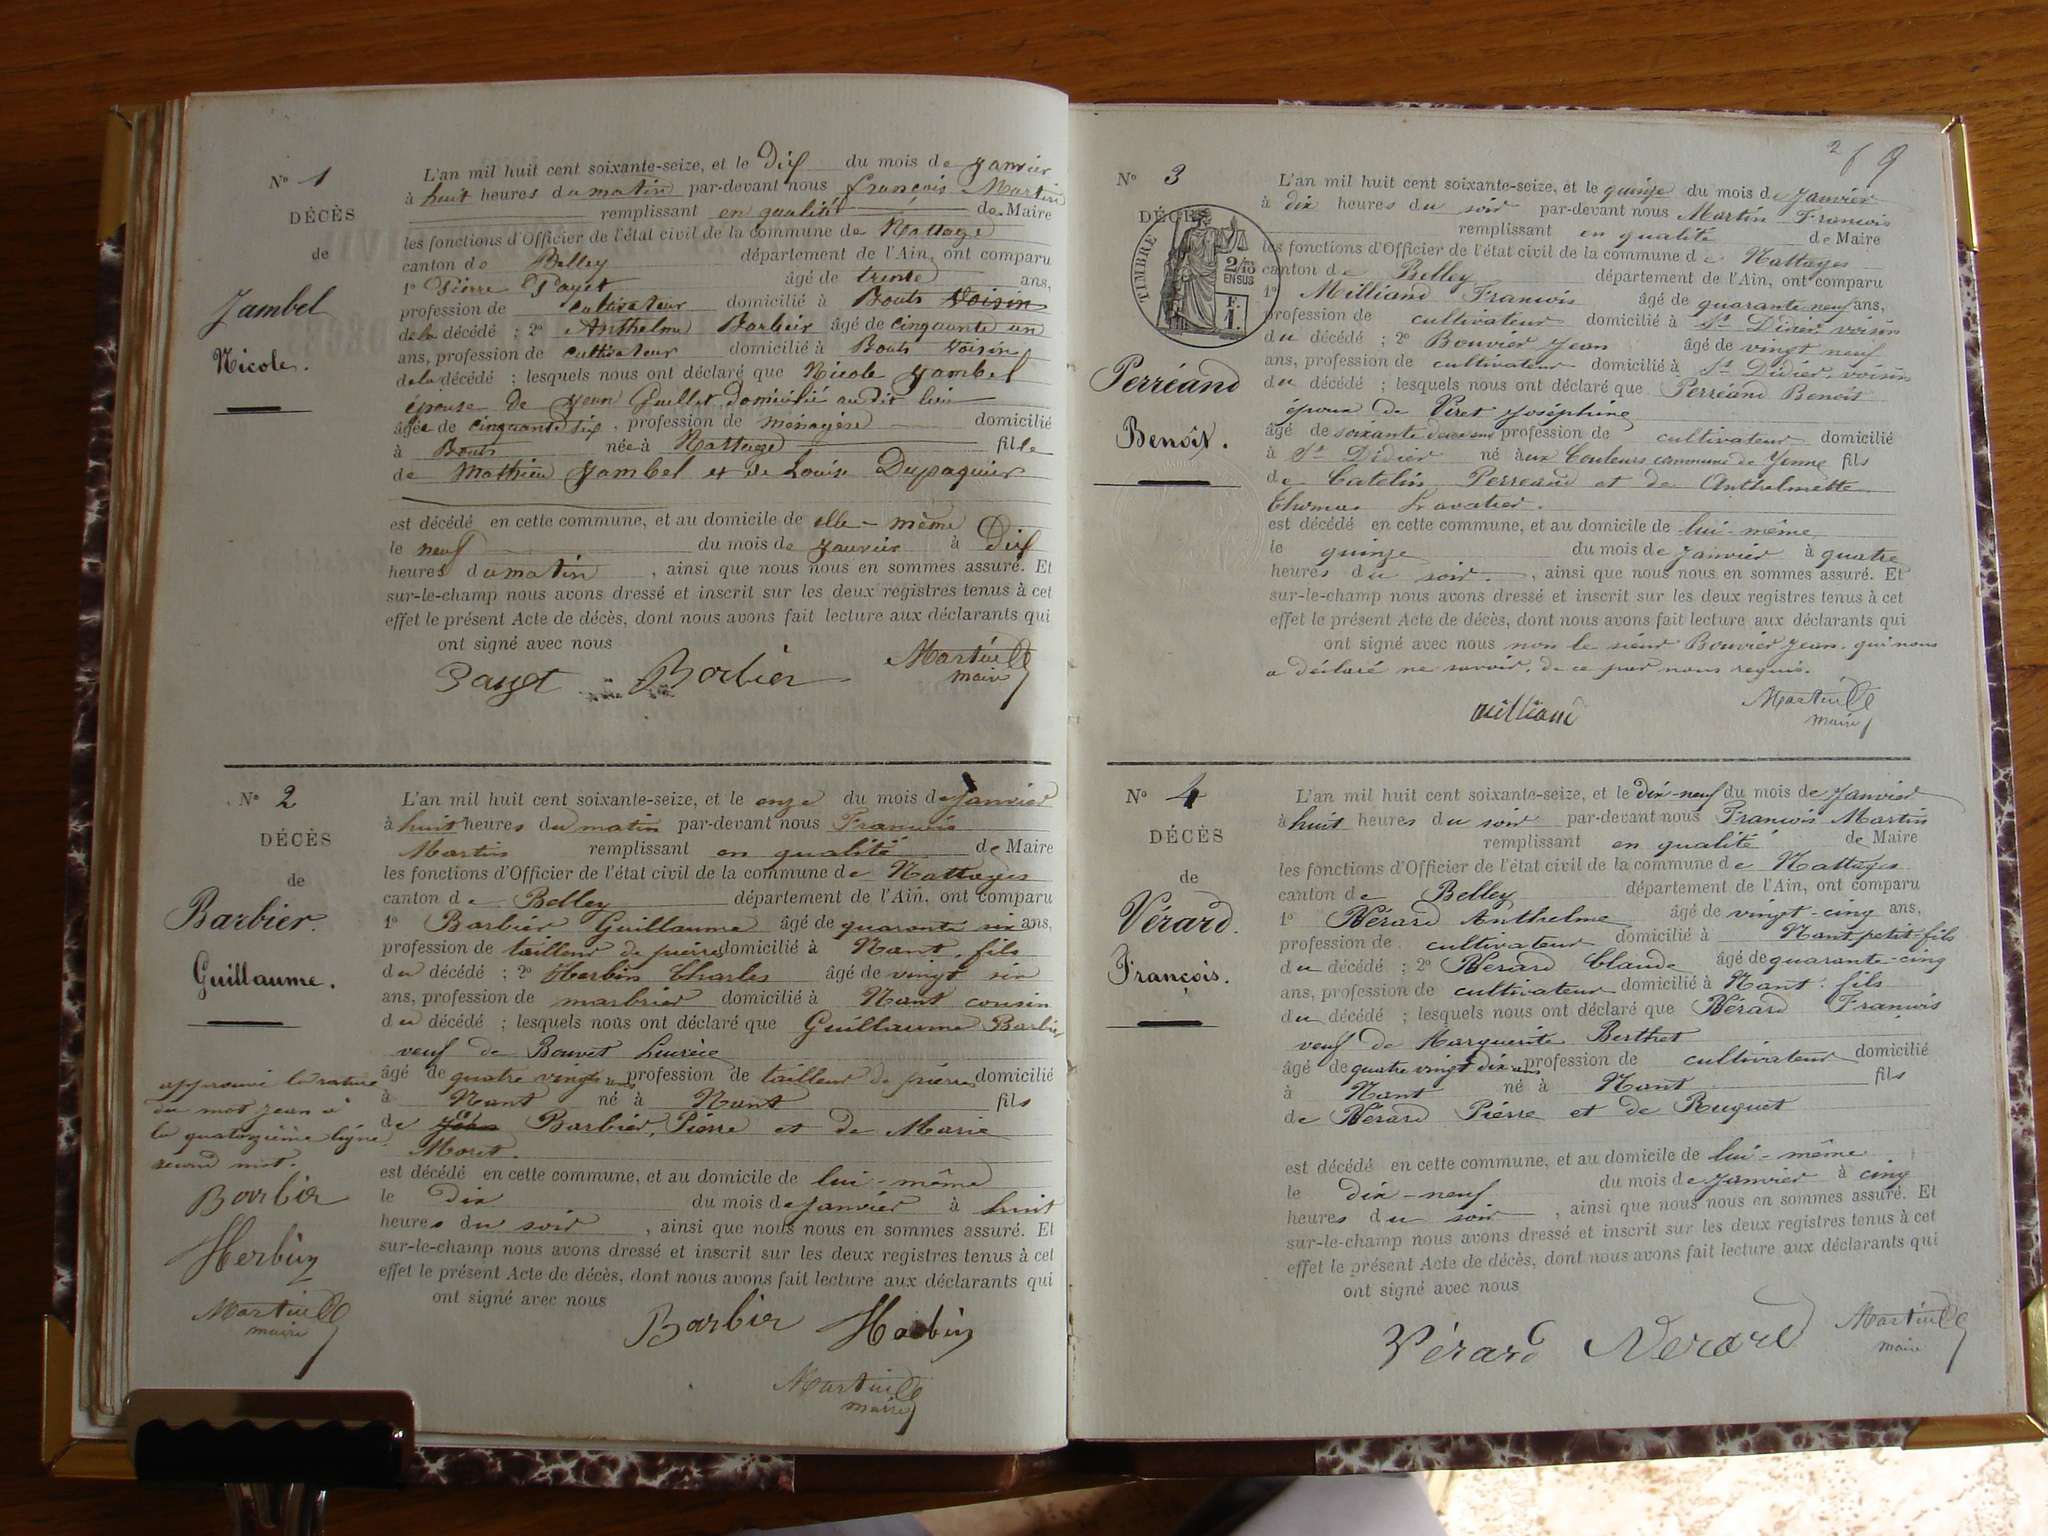 N° 1
DÉCÈS
de
Jambel
Nicole.
L'an mil huit cent soixante-seize, et le Dix du mois de Janvier
à huit heures du matin par-devant nous françois Martin
remplissant en qualité de Maire
les fonctions d'Officier de l'état civil de la commune de Nattage
canton de Belley département de l'Ain, ont comparu
1° Pierre Payet âgé de trente ans,
profession de cultivateur domicilié à Bouts Voisin
de la décédé ; 2° Anthelme Barbier âgé de cinquante un
ans, profession de cultivateur domicilié à Bouts Voisin
de la décédé ; lesquels nous ont déclaré que Nicole Jambel
épouse de Jean Guillet domicilié audit lieu
âgée de cinquante six, profession de ménagère domicilié
à Bouts née à Nattage fille
de Mathieu Jambel et de Louise Dupaquier
est décédé en cette commune, et au domicile de elle-même
le neuf du mois de Janvier à Dix
heures du matin, ainsi que nous nous en sommes assuré. Et
sur-le-champ nous avons dressé et inscrit sur les deux registres tenus à cet
effet le présent Acte de décès, dont nous avons fait lecture aux déclarants qui
ont signé avec nous
Payet Barbier Martin
maire
N° 2
DÉCÈS
de
Barbier.
Guillaume.
L'an mil huit cent soixante-seize, et le onze du mois de Janvier
à huit heures du matin par-devant nous François
Martin remplissant en qualité de Maire
les fonctions d'Officier de l'état civil de la commune de Nattages
canton de Belley département de l'Ain, ont comparu
1° Barbier Guillaume âgé de quarante six ans,
profession de tailleur de pierres domicilié à Nant, fils
du décédé ; 2° Herbin Charles âgé de vingt six
ans, profession de marbrier domicilié à Nant cousin
du décédé ; lesquels nous ont déclaré que Guillaume Barbier
veuf de Bouvet Lucrèce
âgé de quatre vingts ans profession de tailleur de pierres domicilié
à Nant né à Nant fils
de Jean Barbier, Pierre et de Marie
Moret.
est décédé en cette commune, et au domicile de lui-même
le dix du mois de Janvier à huit
heures du soir, ainsi que nous nous en sommes assuré. Et
sur-le-champ nous avons dressé et inscrit sur les deux registres tenus à cet
effet le présent Acte de décès, dont nous avons fait lecture aux déclarants qui
ont signé avec nous
Barbier Herbin
Martin
maire
approuvé la rature
du mot jean à
la quatorzième ligne
second mot.
Barbier
Herbin
Martin
maire
N° 3
DÉCÈS
TIMBRE
2/10
EN SUS
Perréand
Benoît.
L'an mil huit cent soixante-seize, et le quinze du mois de Janvier
à dix heures du soir par-devant nous Martin François
remplissant en qualité de Maire
les fonctions d'Officier de l'état civil de la commune de Nattages
canton de Belley département de l'Ain, ont comparu
1° Milliand François âgé de quarante-neuf ans,
profession de cultivateur domicilié à St Didier voisin
du décédé ; 2° Bouvier Jean âgé de vingt neuf
ans, profession de cultivateur domicilié à St Didier, voisin
du décédé ; lesquels nous ont déclaré que Perréand Benoît
époux de Viret Joséphine
âgé de soixante deux ans profession de cultivateur domicilié
à St Didier né aux Couleurs commune de Yenne fils
de Catelin Perreand et de Anthelmette
Thomas Lavatier.
est décédé en cette commune, et au domicile de lui-même
le quinze du mois de Janvier à quatre
heures du soir, ainsi que nous nous en sommes assuré. Et
sur-le-champ nous avons dressé et inscrit sur les deux registres tenus à cet
effet le présent Acte de décès, dont nous avons fait lecture aux déclarants qui
ont signé avec nous non le sieur Bouvier Jean, qui nous
a déclaré ne savoir, de ce par nous requis.
milliand Martin
maire
N° 4
DÉCÈS
de
Vérard.
François.
L'an mil huit cent soixante-seize, et le dix-neuf du mois de Janvier
à huit heures du soir par-devant nous François Martin
remplissant en qualité de Maire
les fonctions d'Officier de l'état civil de la commune de Nattages
canton de Belley département de l'Ain, ont comparu
1° Vérard Anthelme âgé de vingt-cinq ans,
profession de cultivateur domicilié à Nant petit-fils
du décédé ; 2° Vérard Claude âgé de quarante-cinq
ans, profession de cultivateur domicilié à Nant, fils
du décédé ; lesquels nous ont déclaré que Vérard François
veuf de Marguerite Berthet
âgé de quatre vingt dix ans profession de cultivateur domicilié
à Nant né à Nant fils
de Vérard Pierre et de Ruguet
est décédé en cette commune, et au domicile de lui-même
le dix-neuf du mois de Janvier à cinq
heures du soir, ainsi que nous nous en sommes assuré. Et
sur-le-champ nous avons dressé et inscrit sur les deux registres tenus à cet
effet le présent Acte de décès, dont nous avons fait lecture aux déclarants qui
ont signé avec nous
Vérard Verard Martin
maire